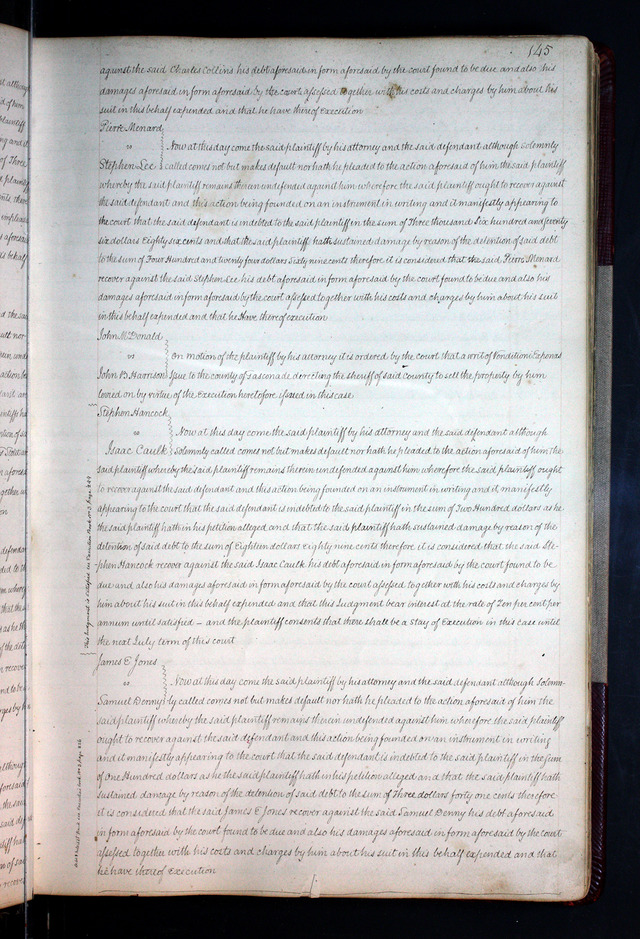 145
against the said Charles Collins his debt aforesaid in form aforesaid by the court found to be due and also his
damages aforesaid in form aforesaid by the court assessed together with his costs and charges by him about his
suit in this behalf expended and that he have thereof execution
Pierre Menard
vs Now at this day come the said plaintiff by his attorney and the said defendant although solemnly
Stephen Lee called comes not but makes default nor hath he pleaded to the action aforesaid of him the said plaintiff
whereby the said plaintiff remains therein undefended against him wherefore the said plaintiff ought to recover against
the said defendant and this action being founded on an instrument in writing and it manifestly appearing to
the court that the said defendant is indebted to the said plaintiff in the sum of Three thousand Six hundred and seventy
six dollars Eighty six cents and that the said plaintiff hath sustained damage by reason of the detention of said debt
to the sum of Four Hundred and twenty four dollars Sixty nine cents therefore it is considered that the said Pierre Menard
recover against the said Stephen Lee his debt aforesaid in form aforesaid by the court found to be due and also his
damages aforesaid in form aforesaid by the court assessed together with his costs and charges by him about his suit
in this behalf expended and that he have thereof execution
John McDonald
vs On motion of the plaintiff by his attorney it is ordered by the court that a writ of Venditioni Exponas
John B Harrison issue to the county of Gasconade directing the sheriff of said county to sell the property by him
levied on by virtue of the Execution heretofore issued in this case
Stephen Hancock
vs Now at this day come the said plaintiff by his attorney and the said defendant although
Isaac Caulk solemnly called comes not but makes default nor hath he pleaded to the action aforesaid of him the
said plaintiff whereby the said plaintiff remains therein undefended against him wherefore the said plaintiff ought
to recover against the said defendant and this action being founded on an instrument in writing and it manifestly
appearing to the court that the said defendant is indebted to the said plaintiff in the sum of Two Hundred dollars as he
the said plaintiff hath in his petition alleged and that the said plaintiff hath sustained damage by reason of the
detention of said debt to the sum of Eighteen dollars eighty nine cents therefore it is considered that the said Ste-
phen Hancock recover against the said Isaac Caulk his debt aforesaid in form aforesaid by the court found to be
due and also his damages aforesaid in form aforesaid by the court assessed together with his costs and charges by
him about his suit in this behalf expended and that this Judgment bear interest at the rate of Ten per cent per
annum until satisfied – and the plaintiff consents that there shall be a stay of Execution in this case until
the next July term of this court
James E Jones
vs Now at this day come the said plaintiff by his attorney and the said defendant although solemn-
Samuel Denny ly called comes not but makes default nor hath he pleaded to the action aforesaid of him the
said plaintiff whereby the said plaintiff remains therein undefended against him wherefore the said plaintiff
ought to recover against the said defendant and this action being founded on an instrument in writing
and it manifestly appearing to the court that the said defendant is indebted to the said plaintiff in the sum
of One Hundred dollars as he the said plaintiff hath in his petition alleged and that the said plaintiff hath
sustained damage by reason of the detention of said debt to the sum of Three dollars forty one cents therefore
it is considered that the said James E Jones recover against the said Samuel Denny his debt aforesaid
in form aforesaid by the court found to be due and also his damages aforesaid in form aforesaid by the court
assessed together with his costs and charges by him about his suit in this behalf expended and that
he have thereof execution
This Judgment is satisfied see Execution Book No 3 Page